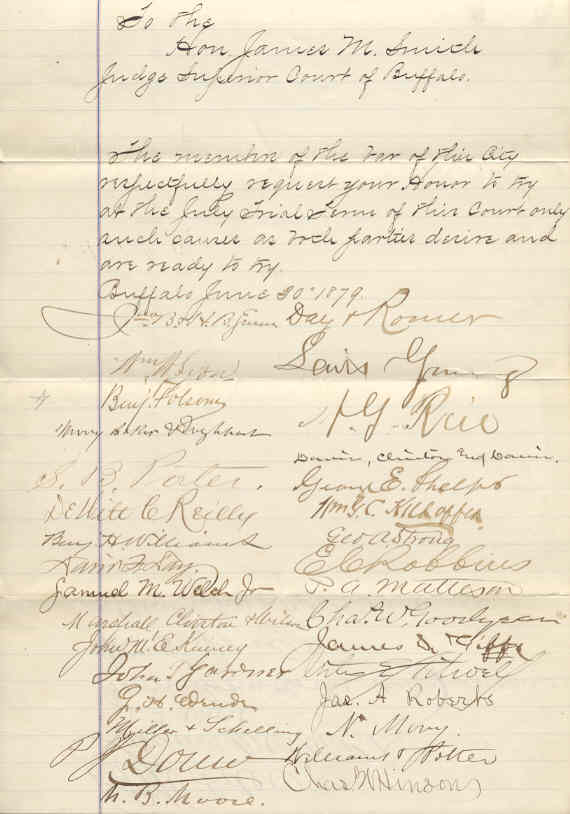 To the
Hon. James M. Smith
Judge Superior Court of Buffalo.
The members of the bar of this City
respectfully request your Honor to try
at the July Trial Term of this Court only
such causes as both parties desire and
are ready to try.
Buffalo June 30th 1879.
B. Green Day & Romer
Wm W Lewis Young
Benj. Folsom
H. G. Rice
S. B. Porter.
George E. Phelps
DeWitt C Reilly Wm F. C.
Benj H. Williams Geo A Strong
E C Robbins
Samuel M. Welch Jr P. A. Matteson
Marshall Clinton & Wilson Chas W. Goodyear
John M. C. Kinney James
John T Gardner
Jas. A Roberts
Miller & Schelling N. Morey.
Williams & Potter
M. B. Moore. Chas F Hinson